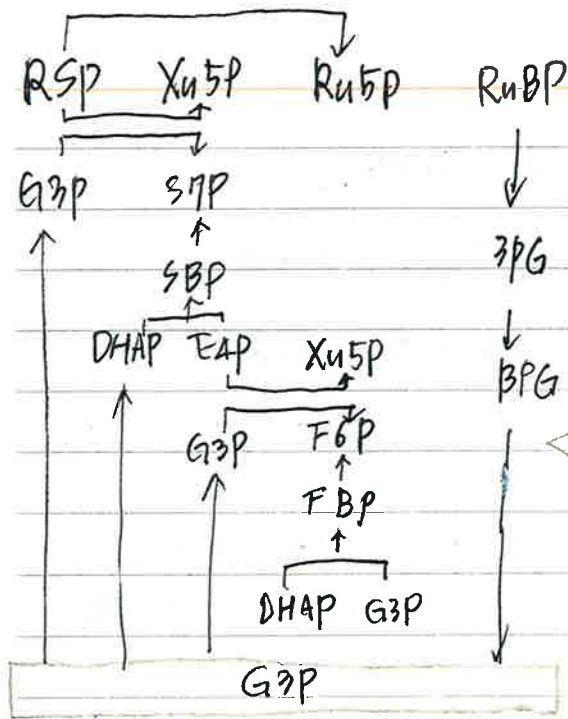 R5P Xu5P Ru5P RuBP
G3P S7P
3PG
SBP
DHAP E4P Xu5P
BPG
G3P F6P
FBP
DHAP G3P
G3P